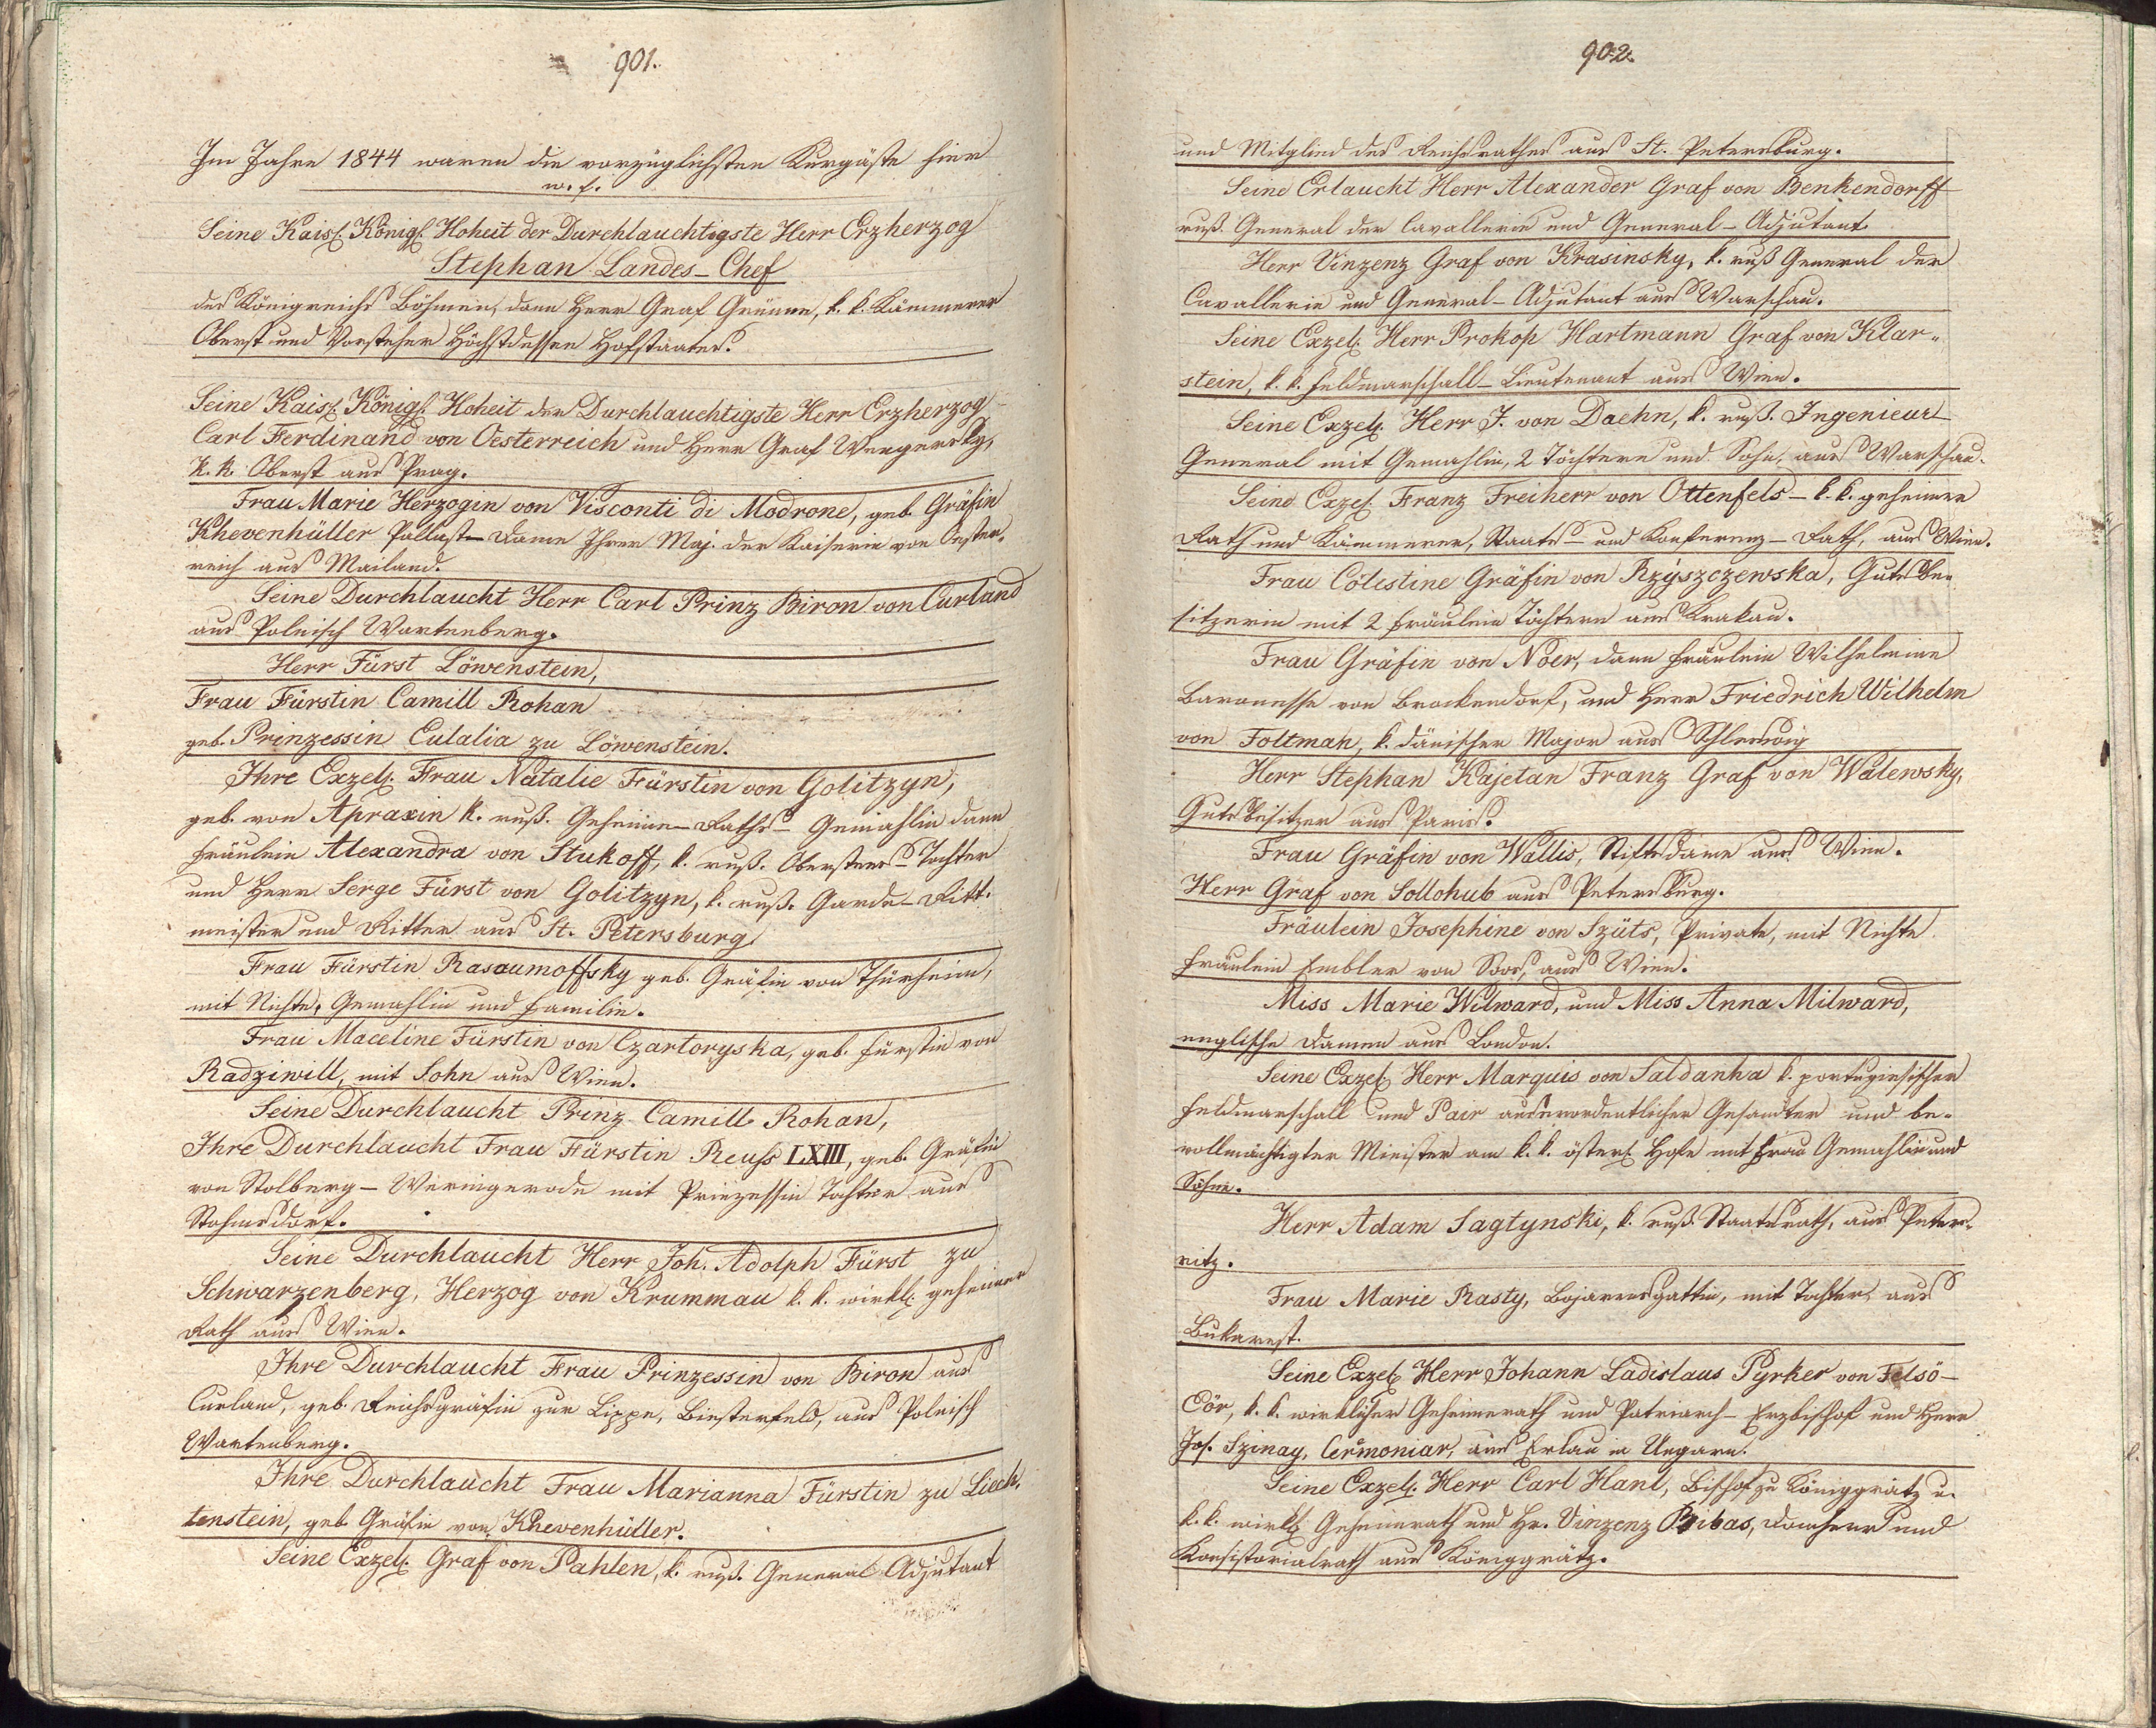 901.
Im Jahre 1844 waren die vorzüglichsten Kurgäste hier
w. f.
Seine Kaisl. Königl. Hoheit der Durchlauchtigste Herr Erzherzog
Stephan Landes-Chef
des Königreichs Böhmen, dann Herr Graf Grünne, k. k. Kämmerer
Oberst und Vorsteher Höchstdessen Hofstaates.
Seine Kaisl. Königl. Hoheit der Durchlauchtigste Herr Erzherzog
Carl Ferdinand von Oesterreich und Herr Graf Wengersky,
k. k. Oberst aus Prag.
Frau Marie Herzogin von Visconti di Modrone, geb. Gräfin
Khevenhüller Pallast-Dame Ihrer Maj. der Kaiserin von Oester-
reich aus Mailand.
Seine Durchlaucht Herr Carl Prinz Biron von Curland
aus Polnisch Wartenberg.
Herr Fürst Löwenstein,
Frau Fürstin Camill Rohan
geb. Prinzessin Eulalia zu Löwenstein.
Ihre Exzell. Frau Natalie Fürstin von Golitzyn,
geb. von Apraxin k. ruß. Geheime-Raths-Gemahlin dann
Fräulein Alexandra von Stukoff, k. ruß. Obersters-Tochter
und Herr Serge Fürst von Golitzyn, k. ruß. Garde-Ritt-
meister und Ritter aus St. Petersburg
Frau Fürstin Rasaumoffsky geb. Gräfin von Thürheim,
mit Nichte, Gemahlin und Familie.
Frau Maceline Fürstin von Czartoryska, geb. Fürstin von
Radziwill, mit Sohn aus Wien.
Seine Durchlaucht Prinz Camill Rohan,
Ihre Durchlaucht Frau Fürstin Reuss LXIII, geb. Gräfin
von Stolberg-Wernigerode mit Prinzessin Tochter aus
Stohnsdorf.
Seine Durchlaucht Herr Joh. Adolph Fürst zu
Schwarzenberg, Herzog von Krummau k. k. wirkl. geheimer
Rath aus Wien.
Ihre Durchlaucht Frau Prinzessin von Biron aus
Curland, geb. Reichsgräfin zur Lippe, Biesterfeld, aus Polnisch
Wartenberg.
Ihre Durchlaucht Frau Marianna Fürstin zu Liech-
tenstein, geb. Gräfin von Khevenhüller.
Seine Exzell. Graf von Pahlen, k. ruß. General Adjutant
902.
und Mitglied des Reichsrathes aus St. Petersburg.
Seine Erlaucht Herr Alexander Graf von Benkendorff
ruß. General der Cavallerie und General-Adjutant
Herr Vinzenz Graf von Krasinsky, k. ruß General der
Cavallerie und General-Adjutant aus Warschau.
Seine Exzel. Herr Prokop Hartmann Graf von Klar-
stein, k. k. Feldmarschall-Lieutenant aus Wien.
Seine Exzell. Herr J. von Daehn, k. ruß. Ingenieur
General mit Gemahlin, 2 Töchtern und Sohn, aus Warschau.
Seine Exzel. Franz Freiherr von Ottenfels - k. k. geheimer
Rath und Kämmerer, Staats- und Konferenz-Rath, aus Wien.
Frau Cölestine Gräfin von Rzÿszczewska, Gutsbe-
sitzerin mit 2 Fräulein Töchtern aus Krakau.
Frau Gräfin von Noer, dann Fräulein Wilhelmine
Baronesse von Brockendorf, und Herr Friedrich Wilhelm
von Foltmah, k. dänischer Major aus Schleswig
Herr Stephan Kajetan Franz Graf von Walewsky,
Gutsbesitzer aus Paris.
Frau Gräfin von Wallis, Stiftsdame aus Wien.
Herr Graf von Sollohub aus Petersburg.
Fräulein Josephine von Szüts, Private, mit Nichte
Fräulein Embler von Bors, aus Wien.
Miss Marie Wilward, und Miss Anna Milward,
englische Damen aus London.
Seine Exzel. Herr Marquis von Saldanha k. portugiesischer
Feldmarschall und Pair ausserordentlicher Gesandter und be-
vollmächtigter Minister am k. k. österl. Hofe mit Frau Gemahlin und
Söhne.
Herr Adam Sagtynski, k. ruß. Staatsrath, aus Peter-
nitz.
Frau Marie Rasty, Bojarensgattin, mit Tochter, aus
Bukarest.
Seine Exzel. Herr Johann Ladislaus Pyrker von Felsö-
Eör, k. k. wirklicher Geheimerath und Patriarch-Erzbischof und Herr
Jos. Szinay, Cermoniar, aus Erlau in Ungarn.
Seine Exzell. Herr Carl Hanl, Bischof zu Königgrätz u.
k. k. wirkl. Geheimrath und Hr. Vinzenz Bibas, Domherr und
Konsistorialrath aus Königgrätz.